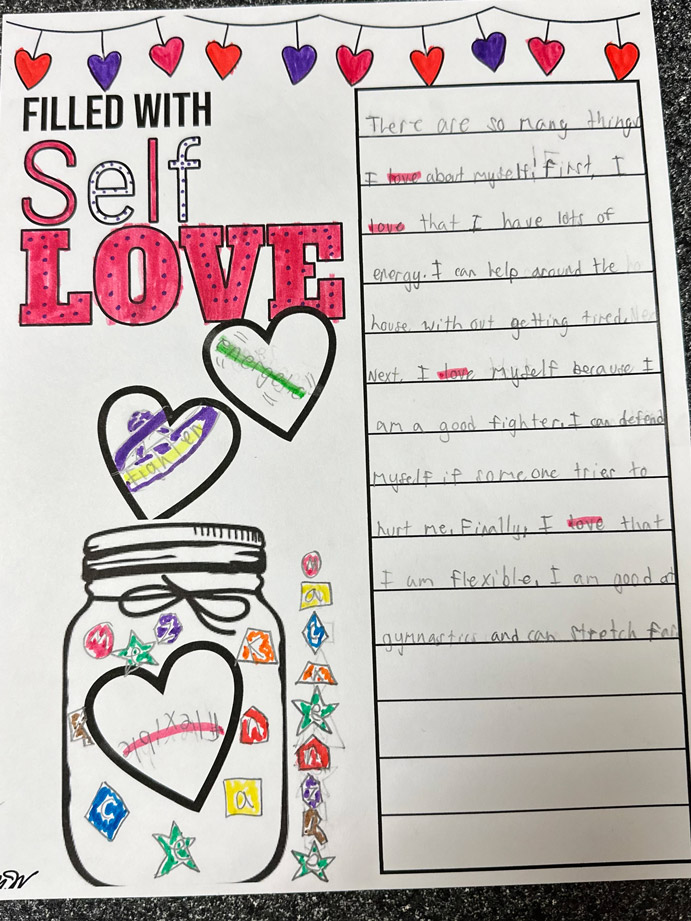 FILLED WITH
Self
LOVE
energetic
flexible
There are so many things
I love about myself! First, I
love that I have lots of
energy. I can help around the
house with out getting tired.
Next, I love Myself because I
am a good fighter. I can defend
myself if some one tries to
hurt me. Finally, I love that
I am flexible. I am good at
gymnastics and can stretch far